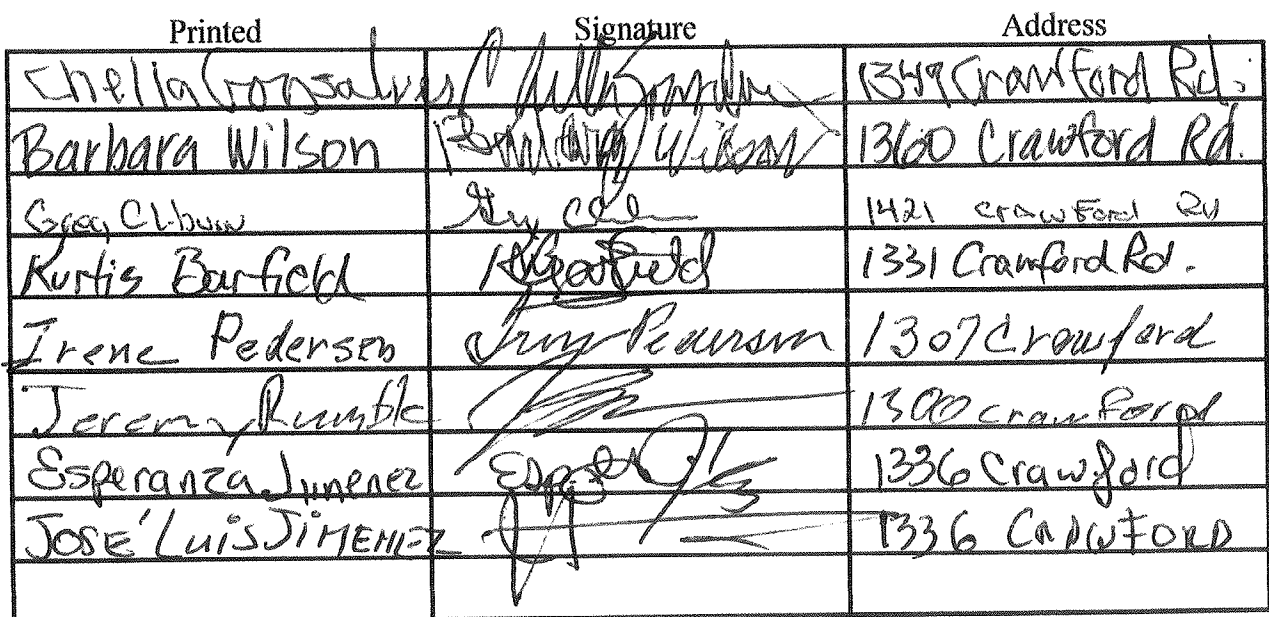 Printed Signature Address
Chella Gonsalves 1349 Crawford Rd.
Barbara Wilson Barbara Wilson 1360 Crawford Rd.
Greg Cliburn 1421 Crawford Rd
Kurtis Barfield KBarfield 1331 Crawford Rd.
Irene Pedersen Irene Pedersen 1307 Crawford
Jeremy Rumble 1300 Crawford
Esperanza Jimenez 1336 Crawford
JOSÉ LuiS JIMENEZ 1336 CRAWFORD